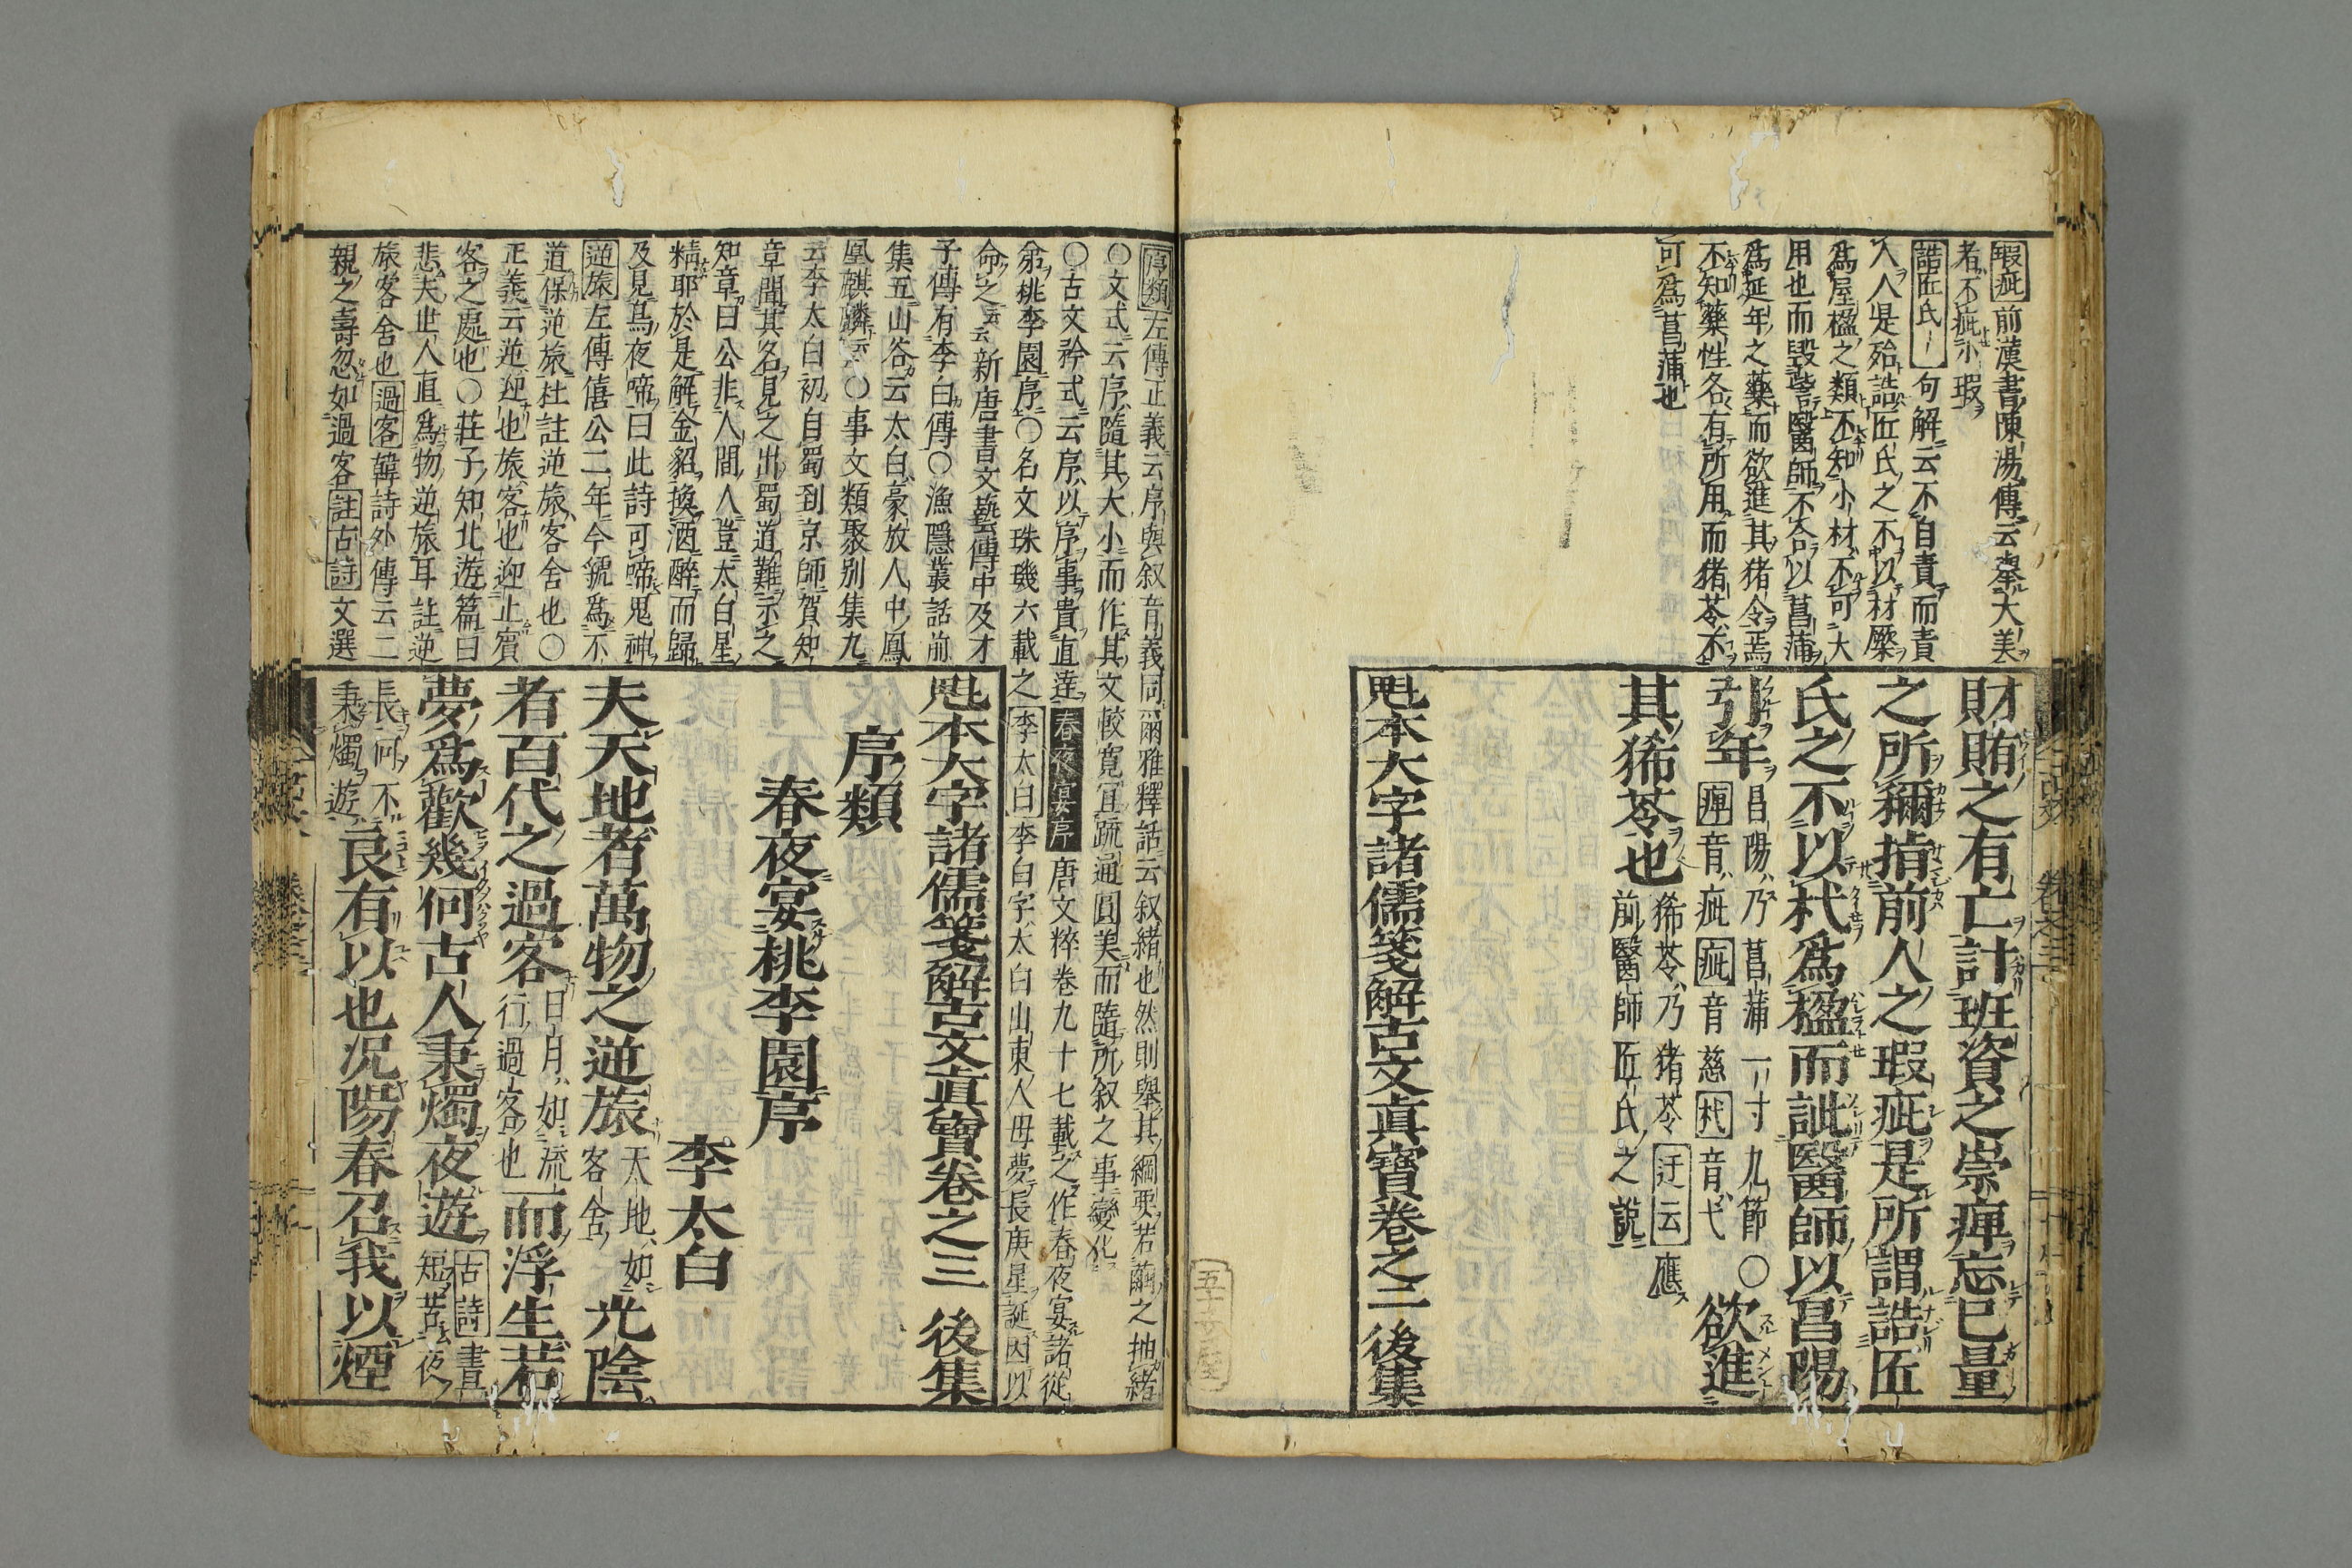 瑕疵前漢書陳湯傳云擧大美
者不疵小瑕
詰匠氏句解云不自責而責
人人是殆詰匠氏之不以材檿
爲屋楹之類不知小材不可大
用也而毀訾醫師不合以菖蒲
爲延年之藥而欲進其猪令焉
不知藥性各有所用而猪苓不
可爲菖蒲也
財賄之有亡計班資之崇痺忘已量
之所稱揹前人之瑕疵是所謂詰匠
氏之不以杙爲楹而訿醫師以昌陽
引年
昌陽乃菖蒲一寸九節〇
痺音疵疵音慈杙音弋
欲進
其豨苓也
豨苓乃猪苓迂云應
前醫師匠氏之說
魁本大字諸儒箋解古文眞寶卷之二 後集
序類左傳正義云序與叙音義同爾雅釋詁云叙緒也然則舉其綱要若繭之抽緒
〇文式云序隨其大小而作其文較寬宜疏通圓美而隨所叙之事變化
〇古文矜式云序以序事貴直達春夜宴序唐文粹卷九十七載之作春夜宴諸從
弟桃李園序〇名文珠璣六載之李太白李白字太白山東人母夢長庚星誕因以
命之云云新唐書文藝傳中及才
子傳有李白傳〇漁隱叢話前
集五山谷云太白豪放人中鳳
凰麒麟云〇事文類聚別集九
云李太白初自蜀到京師賀知
章聞其名見之出蜀道難示之
知章曰公非人間人豈太白星
精耶於是解金貂換酒醉而歸
及見烏夜啼曰此詩可啼鬼神
逆旅左傳僖公二年今虢爲不
道保逆旅杜註逆旅客舍也〇
正義云逆迎也旅客也迎止賓
客之處也〇莊子知北遊篇曰
悲夫世人直爲物逆旅耳註逆
旅客舍也過客韓詩外傳云二
親之壽忽如過客註古詩文選
魁本大字諸儒箋解古文眞寶卷之三 後集
序類
春夜宴桃李園序
李太白
夫天地者萬物之逆旅
天地如
客舍
光陰
者百代之過客
日月如流
行過客也
而浮生若
夢爲歡幾何古人秉燭夜遊
古詩晝
短苦夜
長何不
秉燭遊
良有以也況陽春召我以煙